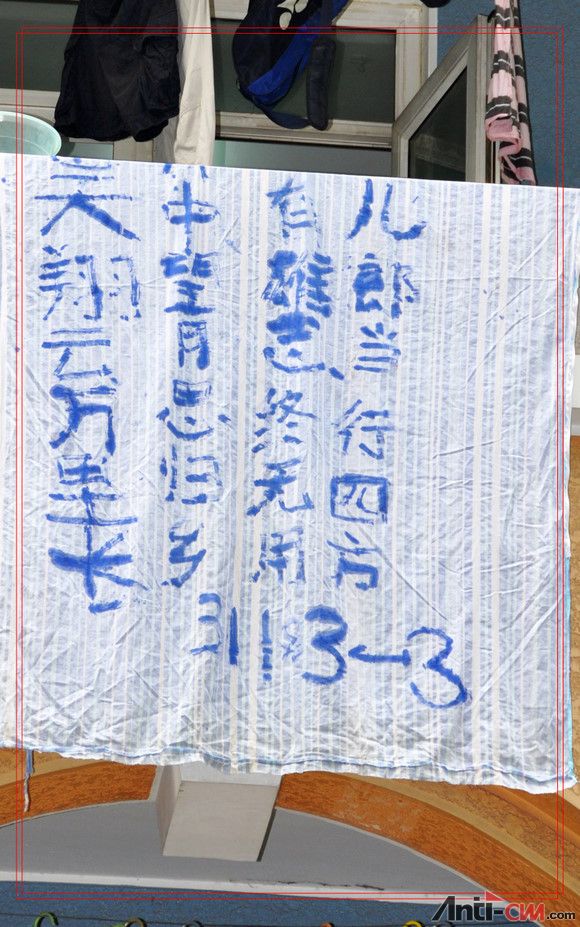 儿郎当行四方
有雄志终无用
中望月思归乡
翔云万里长
311 3-3
Anti-CM.com